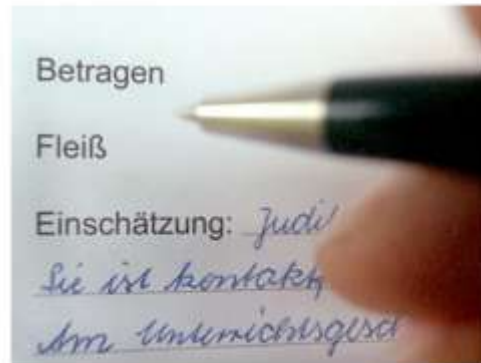 Betragen
Fleiß
Einschätzung: Judi
Sie ist kontakt
Am Unterrichtsgesc